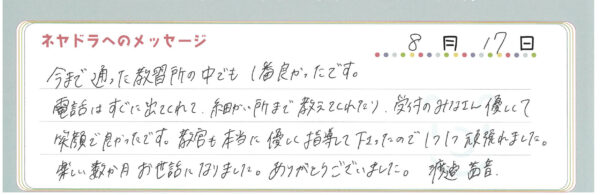 ネヤドラへのメッセージ
8月17日
今まで通った教習所の中でも1番良かったです。
電話はすぐに出てくれて、細かい所まで教えてくれたり、受付のみなさん優しくて
笑顔で良かったです。教官も本当に優しく指導して下さったので1つ1つ頑張れました。
楽しい数か月お世話になりました。ありがとうございました。